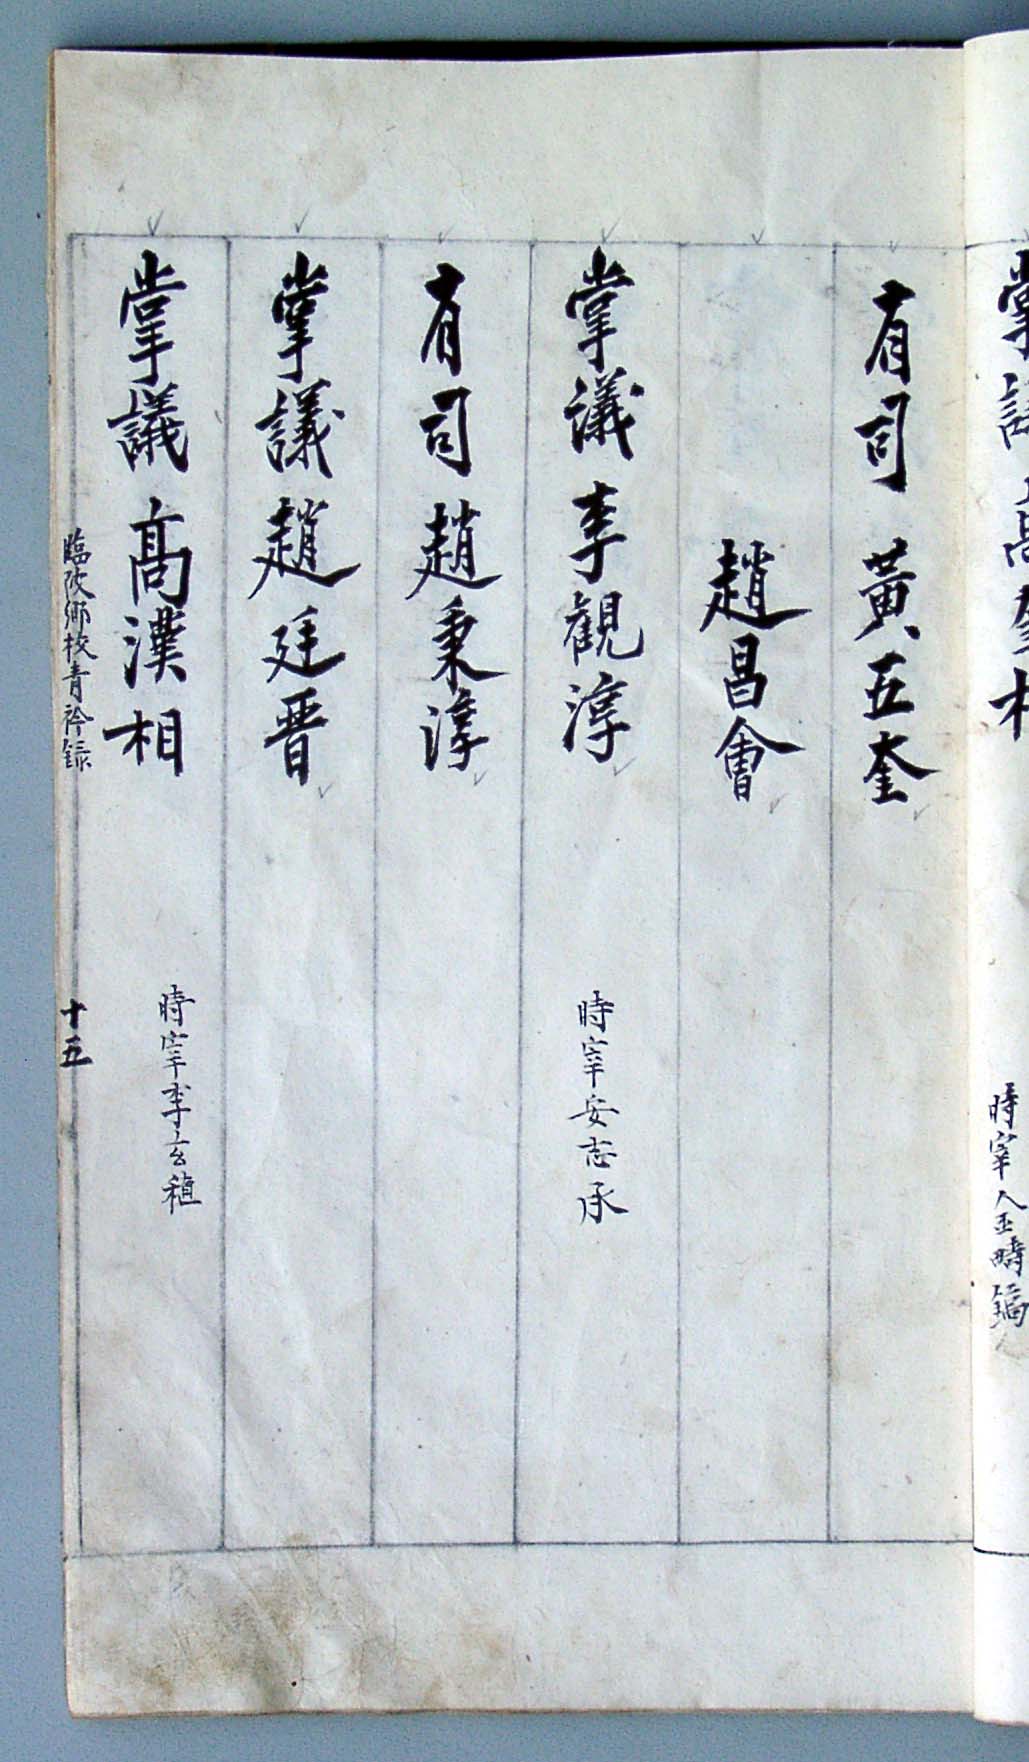 時宰金疇鎬
有司 黃五奎
趙昌會
掌議 李觀淳 時宰安志承
有司 趙秉淳
掌議 趙廷晋
掌議 高漢相 時宰李玄稙
臨陂鄉校青衿錄 十五